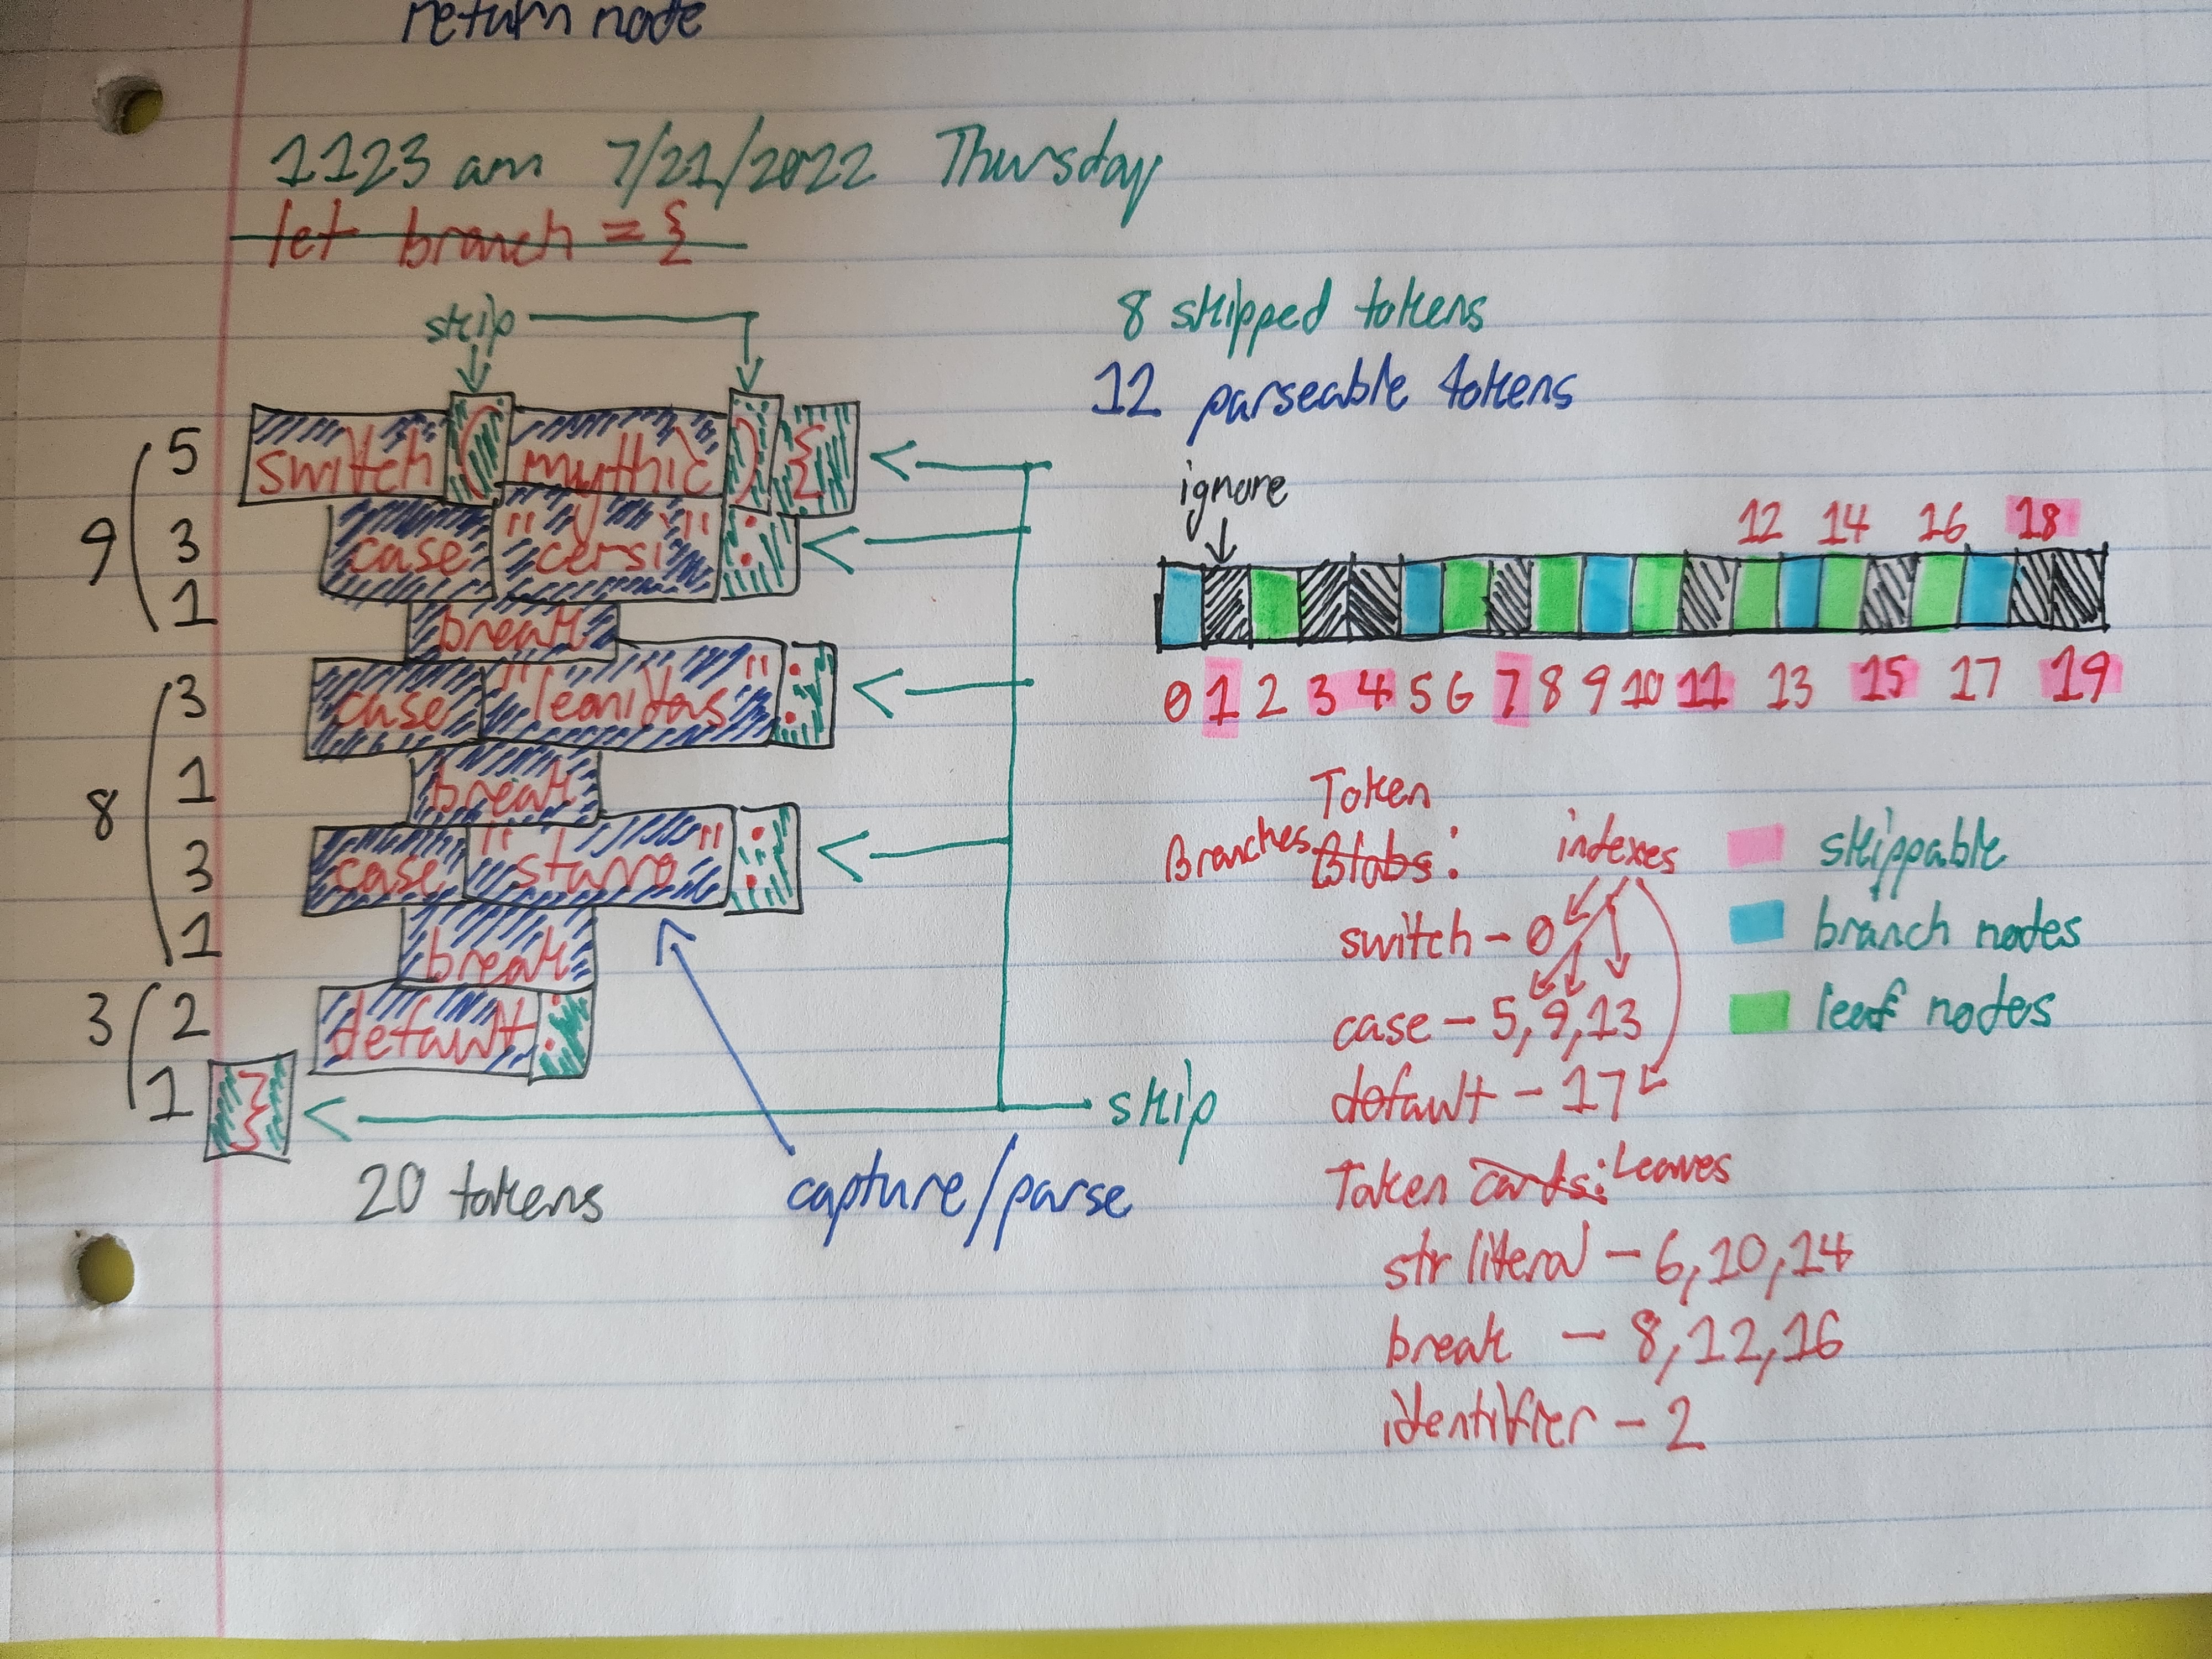 return node
1123 am 7/21/2022 Thursday
let branch = {
skip
8 skipped tokens
12 parseable tokens
ignore
9
5 switch ( mythic ) {
3 case "cersi" :
1 break
8
3 case "leonidas" :
1 break
3 case "starro" :
1 break
3
2 default :
1 }
skip
20 tokens
capture/parse
12 14 16 18
0 1 2 3 4 5 6 7 8 9 10 11 13 15 17 19
Token
Branches Blobs: indexes
switch - 0
case - 5, 9, 13
default - 17
Token Cards: Leaves
str literal - 6, 10, 14
break - 8, 12, 16
identifier - 2
skippable
branch nodes
leaf nodes